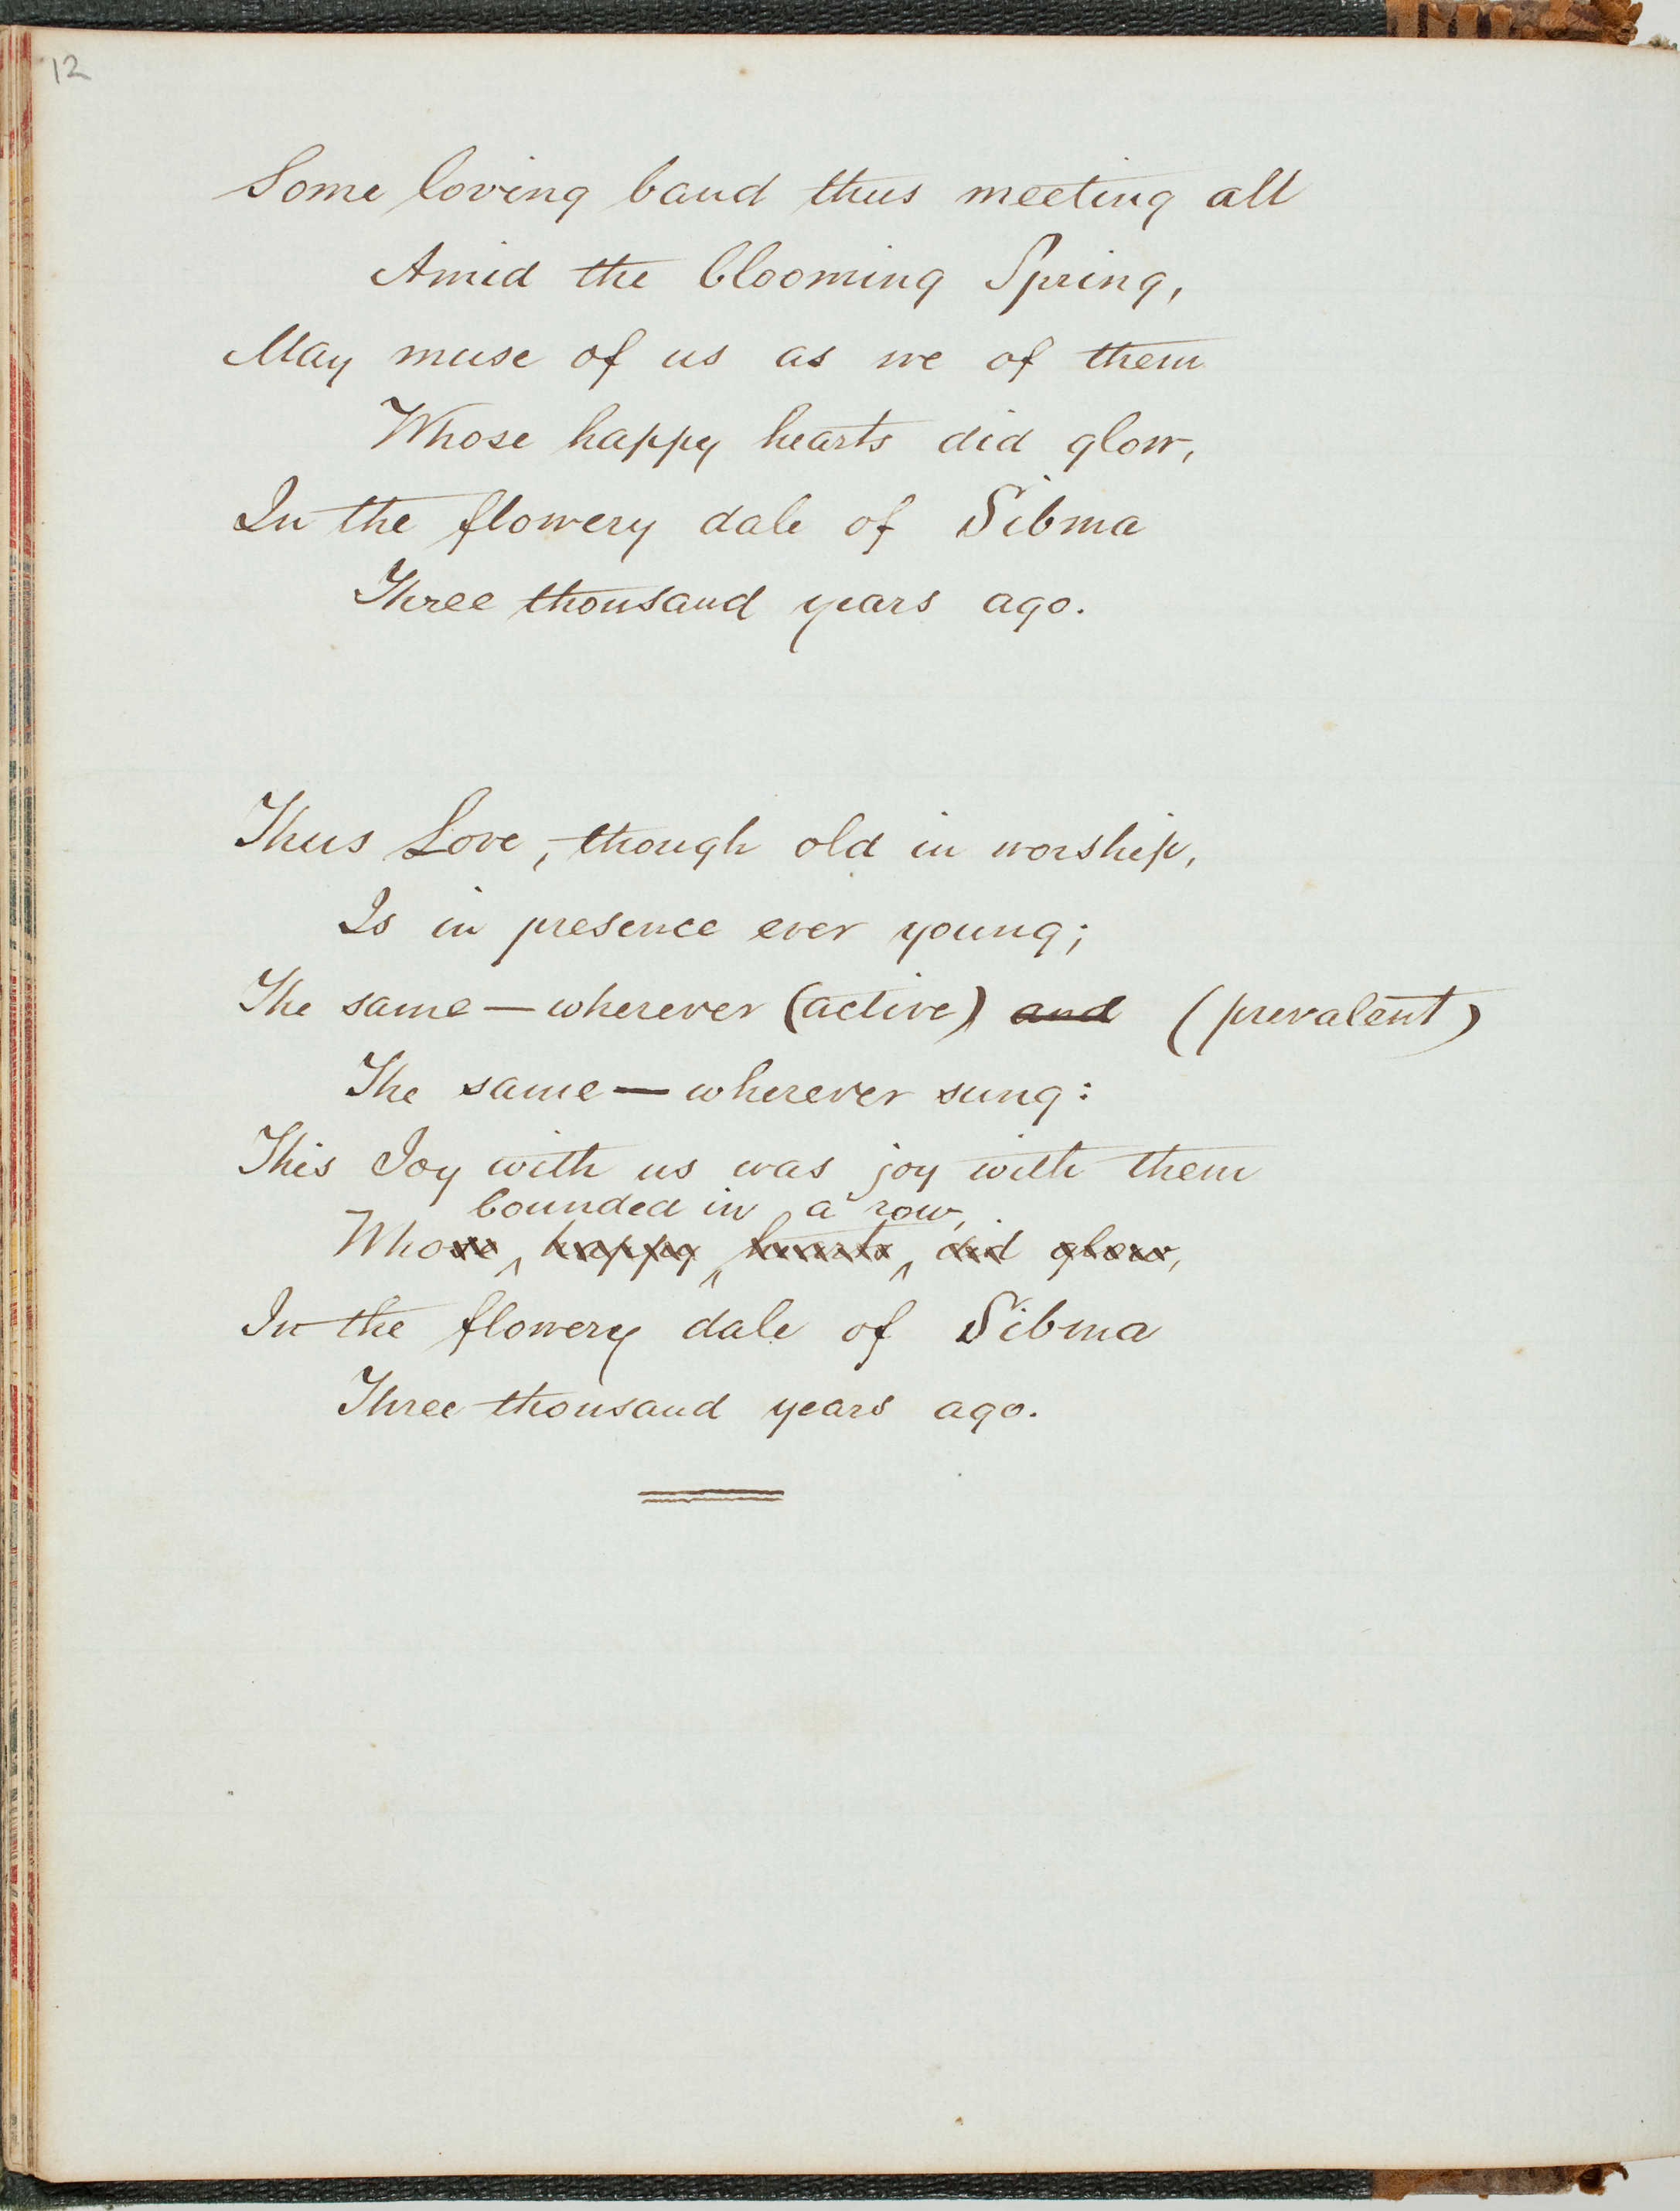 12
Some loving band thus meeting all
Amid the blooming Spring,
May muse of us as we of them
Whose happy hearts did glow,
In the flowery dale of Sibma
Three thousand years ago.
Thus Love, though old in worship,
Is in presence ever young;
The same — wherever (active) and (prevalent)
The same — wherever sung:
This Joy with us was joy with them
bounded in a row,
Whose happy hearts did glow,
In the flowery dale of Sibma
Three thousand years ago.